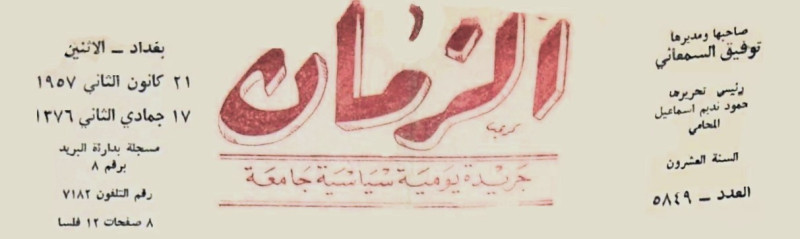 صاحبها ومديرها
توفيق السمعاني
رئيس تحريرها
حمود نديم اسماعيل
المحامي
السنة العشرون
العدد – ٥٨٤٩
الزمان
جريدة يومية سياسية جامعة
بغداد – الاثنين
٢١ كانون الثاني ١٩٥٧
١٧ جمادي الثاني ١٣٧٦
مسجلة بدائرة البريد
برقم ٨
رقم التلفون ٧١٨٢
٨ صفحات ١٢ فلسا